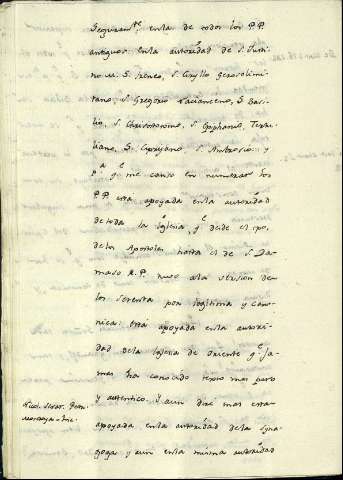 Seguramte, en la de todos los P.P.
antiguos en la autoridad de S. Justi-
no M. S. Ireneo, S. Cyrillo Gerosolimi-
tano, S. Gregorio Nacianceno, S. Basi-
lio, S. Chrisostomo, S. Epiphanio, Tertu-
liano, S. Cypriano S. Ambrosio y
pa qe me canso en numerar los
P.P. esta apoyada en la autoridad
de toda la Iglesia, qe desde el tpo.
de los Apostoles hasta el de S. Da-
maso R.P. tuvo a la version de
los setenta por legitima y cano-
nica: esta apoyada en la autori-
dad de la Iglesia de Oriente qe ja-
mas ha conocido texto mas puro
y autentico. Y aun dire mas esta
apoyada en la autoridad de la Syna-
goga y aun en la misma autoridad